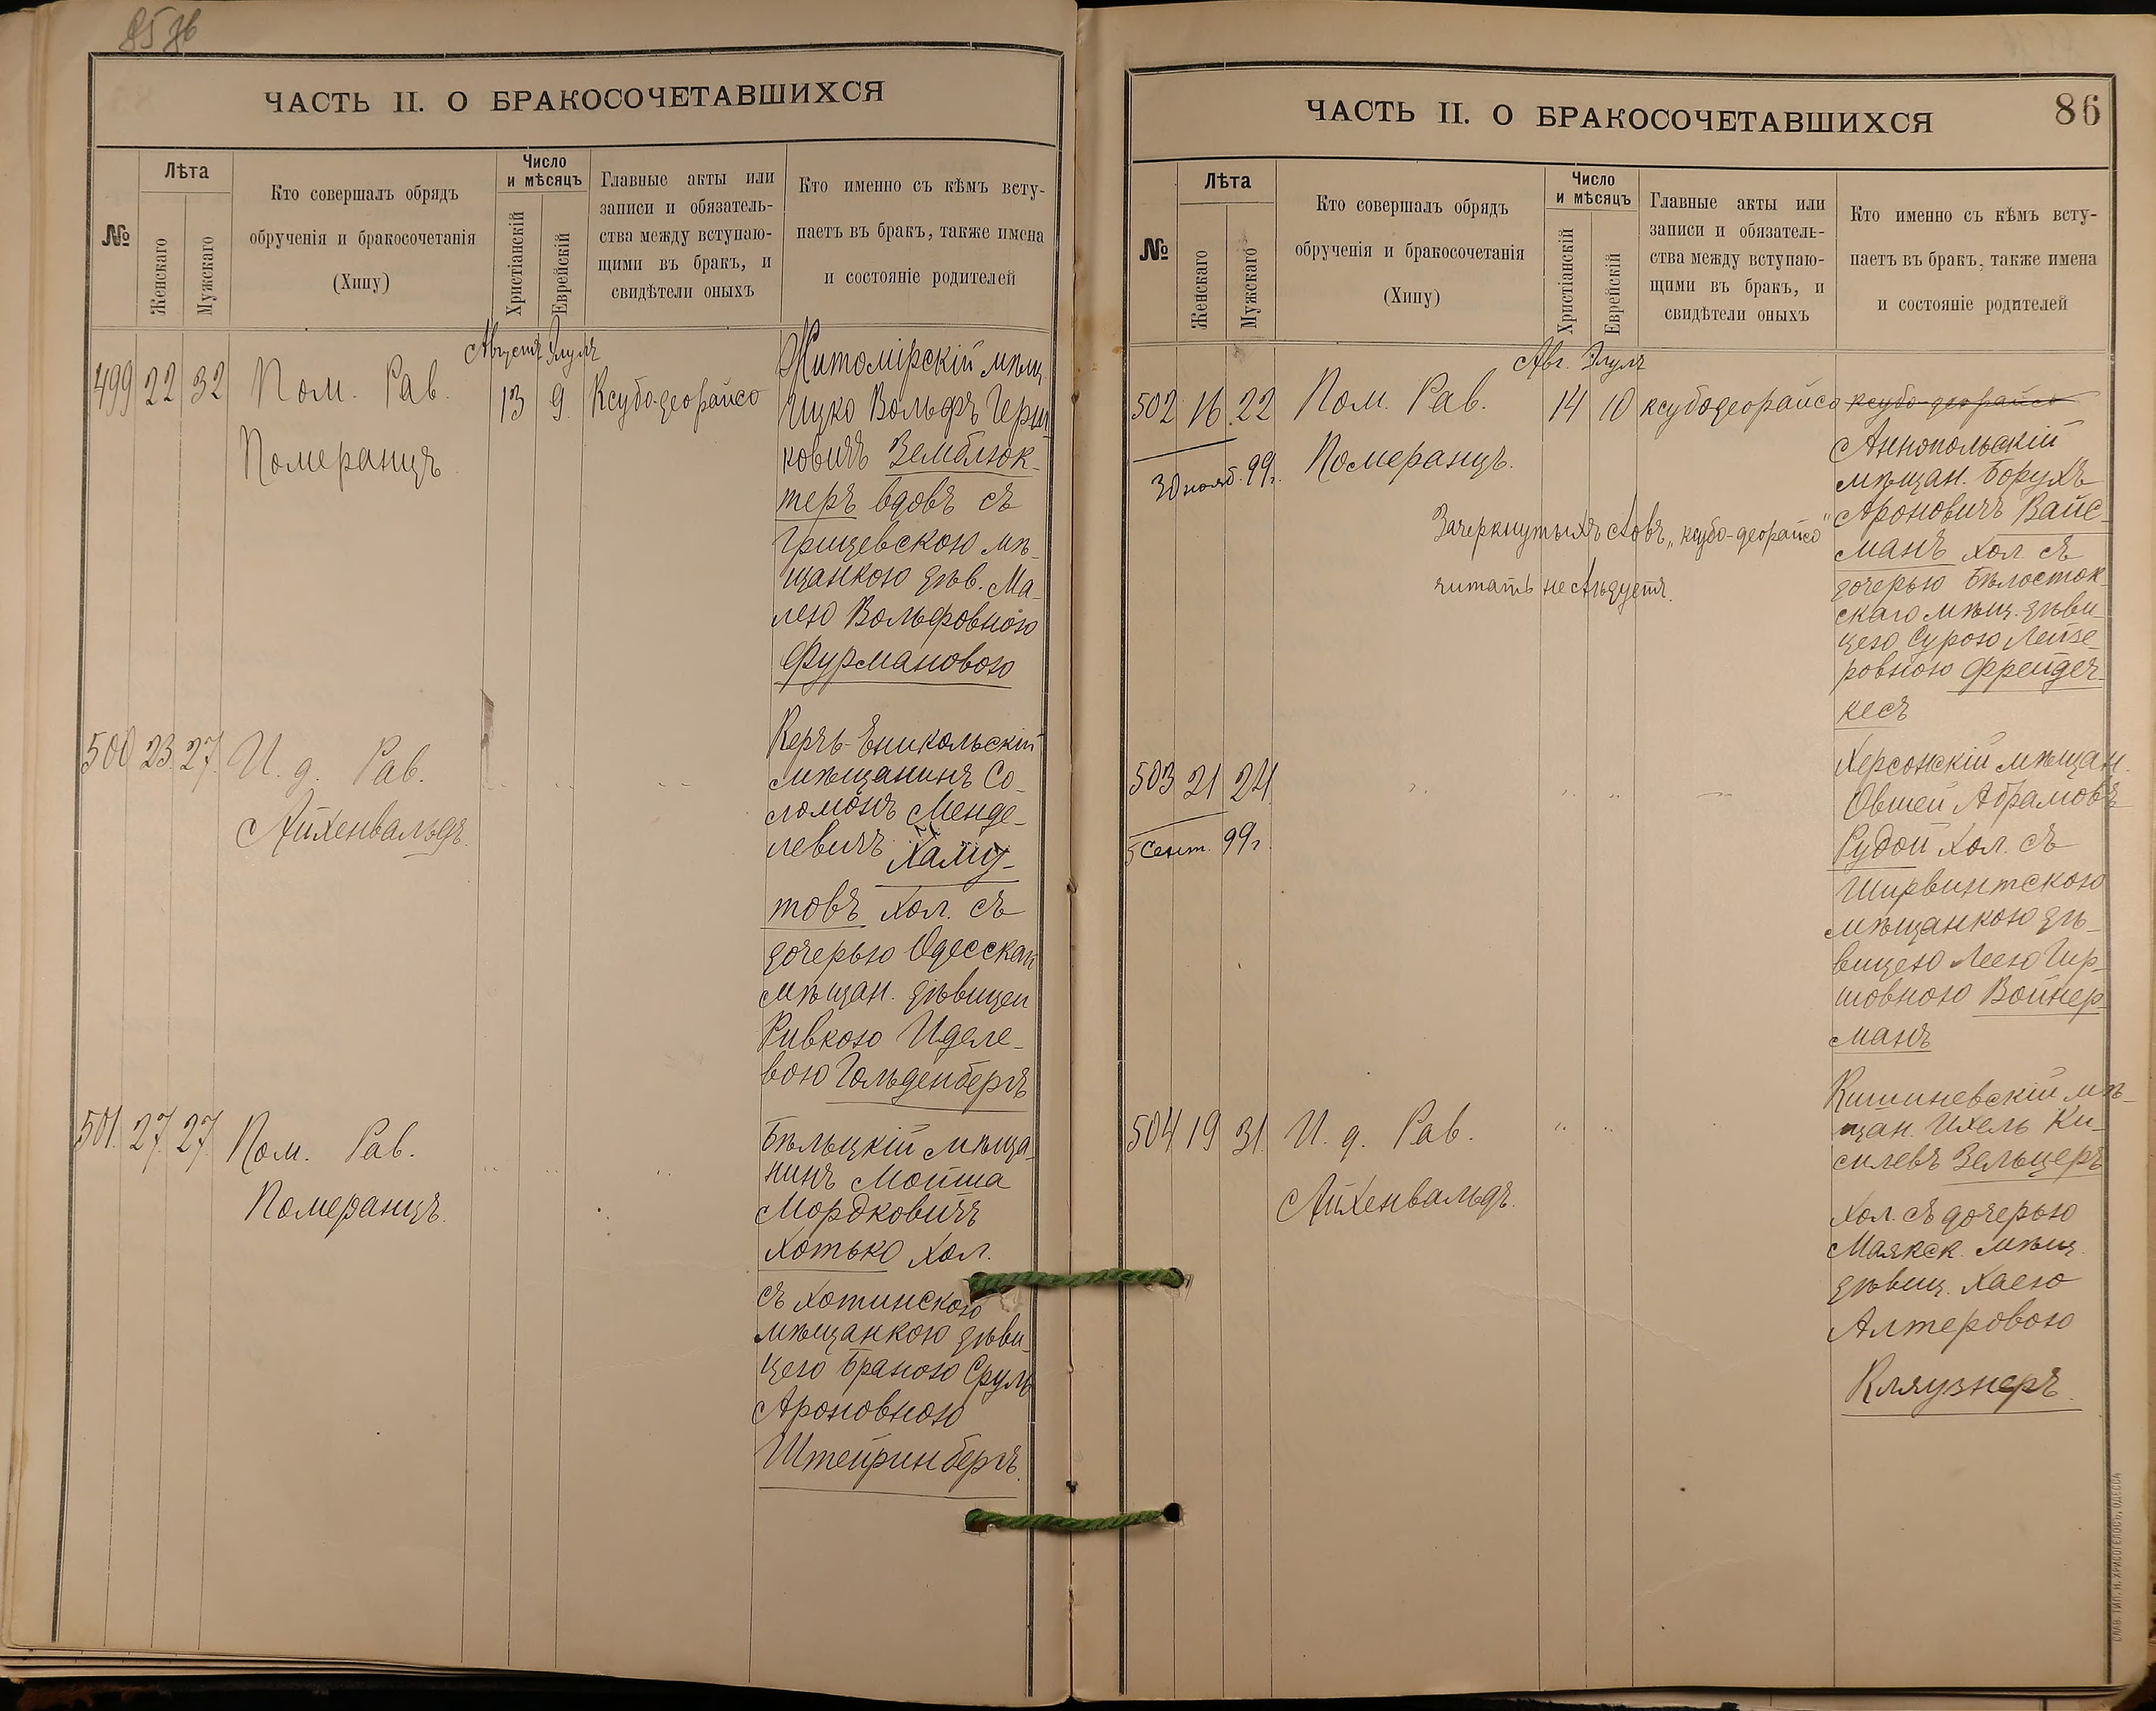 85 об
ЧАСТЬ II. О БРАКОСОЧЕТАВШИХСЯ
№
Лѣта
Женскаго
Мужскаго
Кто совершалъ обрядъ
обрученія и бракосочетанія
(Хипу)
Число
и мѣсяцъ
Христіанскій
Еврейскій
Главные акты или
записи и обязатель-
ства между вступаю-
щими въ бракъ, и
свидѣтели оныхъ
Кто именно съ кѣмъ всту-
паетъ въ бракъ, также имена
и состояніе родителей
Августъ Элулъ
499 22 32 Пом. Рав.
Померанцъ
13 9 Ксубо-деорайсо
Житомірскій мѣщ.
Ицко Вольфъ Герш
ковичъ Земблюк-
теръ вдовъ съ
Грицевскою мѣ-
щанкою дѣв. Ма-
лею Вольфовною
Фурмановою
500 23 27 И. д. Рав.
Айхенвальдъ.
Керчь-Еникольскій
мѣщанинъ Со-
ломонъ Менде-
левичъ Хаму-
товъ хол. съ
дочерью Одесскаг
мѣщан. дѣвицей
Ривкою Иделе-
вою Гольденбергъ
501. 27. 27. Пом. Рав.
Померанцъ.
Бѣльцкій мѣща-
нинъ Мойша
Мордковичъ
Хотько хол.
съ Хотинскою
мѣщанкою дѣви-
цею Браною Сруль
Ароновною
Штейринбергъ.
86
ЧАСТЬ II. О БРАКОСОЧЕТАВШИХСЯ
№
Лѣта
Женскаго
Мужскаго
Кто совершалъ обрядъ
обрученія и бракосочетанія
(Хипу)
Число
и мѣсяцъ
Христіанскій
Еврейскій
Главные акты или
записи и обязатель-
ства между вступаю-
щими въ бракъ, и
свидѣтели оныхъ
Кто именно съ кѣмъ всту-
паетъ въ бракъ, также имена
и состояніе родителей
Авг. Элулъ
502 16 22 Пом. Рав.
30 нояб. 99 г.
Померанцъ.
14 10 ксубодеорайсо ксубо-деорайсо
Зачеркнутыхъ словъ „ксубо-деорайсо"
читать не слѣдуетъ.
Аннопольскій
мѣщан. Борухъ
Ароновичъ Вайс-
манъ хол. съ
дочерью Бѣлосток-
скаго мѣщ. дѣви-
цею Сурою Лейзе-
ровною Фрейдеч-
кесъ
503 21 24
5 Сент. 99 г
Херсонскій мѣщан.
Овшей Абрамовъ
Рудой хол. съ
Ширвинтскою
мѣщанкою дѣ-
вицею Леею Гир-
шовною Войнер-
манъ
504 19 31. И. д. Рав.
Айхенвальдъ.
Кишиневскій мѣ-
щан. Ихель Ки-
силевъ Зельцеръ
хол. съ дочерью
Маякск. мѣщ.
дѣвиц. Хаею
Алтеровою
Кляузнеръ.
СЛАВ. ТИП. Н. ХРИСОГЕЛОСЪ, ОДЕССА